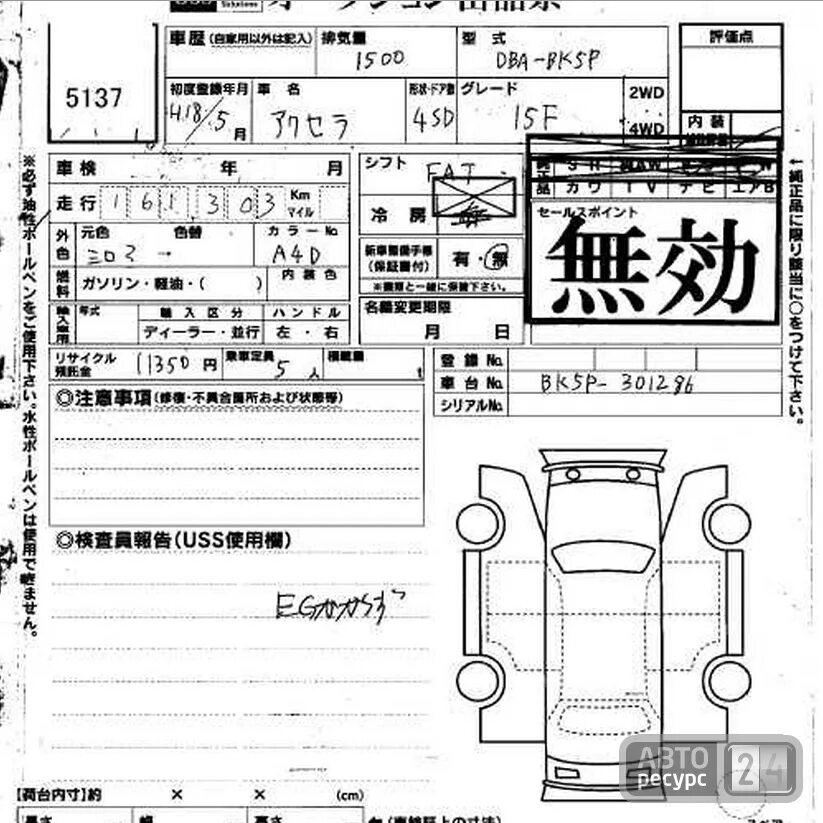 Solutions オークション出品票
5137
車歴(自家用以外は記入) 排気量 1500 型式 DBA-BK5P 評価点
初度登録年月 H18/5月 車名 アクセラ 形状・ドア数 4SD グレード 15F 2WD 4WD 内装
車検 年 月 シフト FAT
走行 161,303 Km マイル 冷房
純正品 カワ TV ナビ エアB
セールスポイント
無効
外色 元色 色替 カラーNo
シロ2 → A4D
新車整備手帳(保証書付) 有・無
※書類と一緒に保管下さい。
燃料 ガソリン・軽油・( ) 内装色
輸入車用 年式 輸入区分 ハンドル
ディーラー・並行 左・右
名義変更期限
月 日
リサイクル預託金 11350円 乗車定員 5人 積載量 t
登録No.
車台No. BK5P-301286
シリアルNo.
◎注意事項(修復・不具合箇所および状態等)
◎検査員報告(USS使用欄)
EGかからず
※必ず油性ボールペンをご使用下さい。水性ボールペンは使用できません。
←純正品に限り該当に○をつけて下さい。
【荷台内寸】約 × × (cm)
長さ 幅 高さ
АВТО 24
ресурс